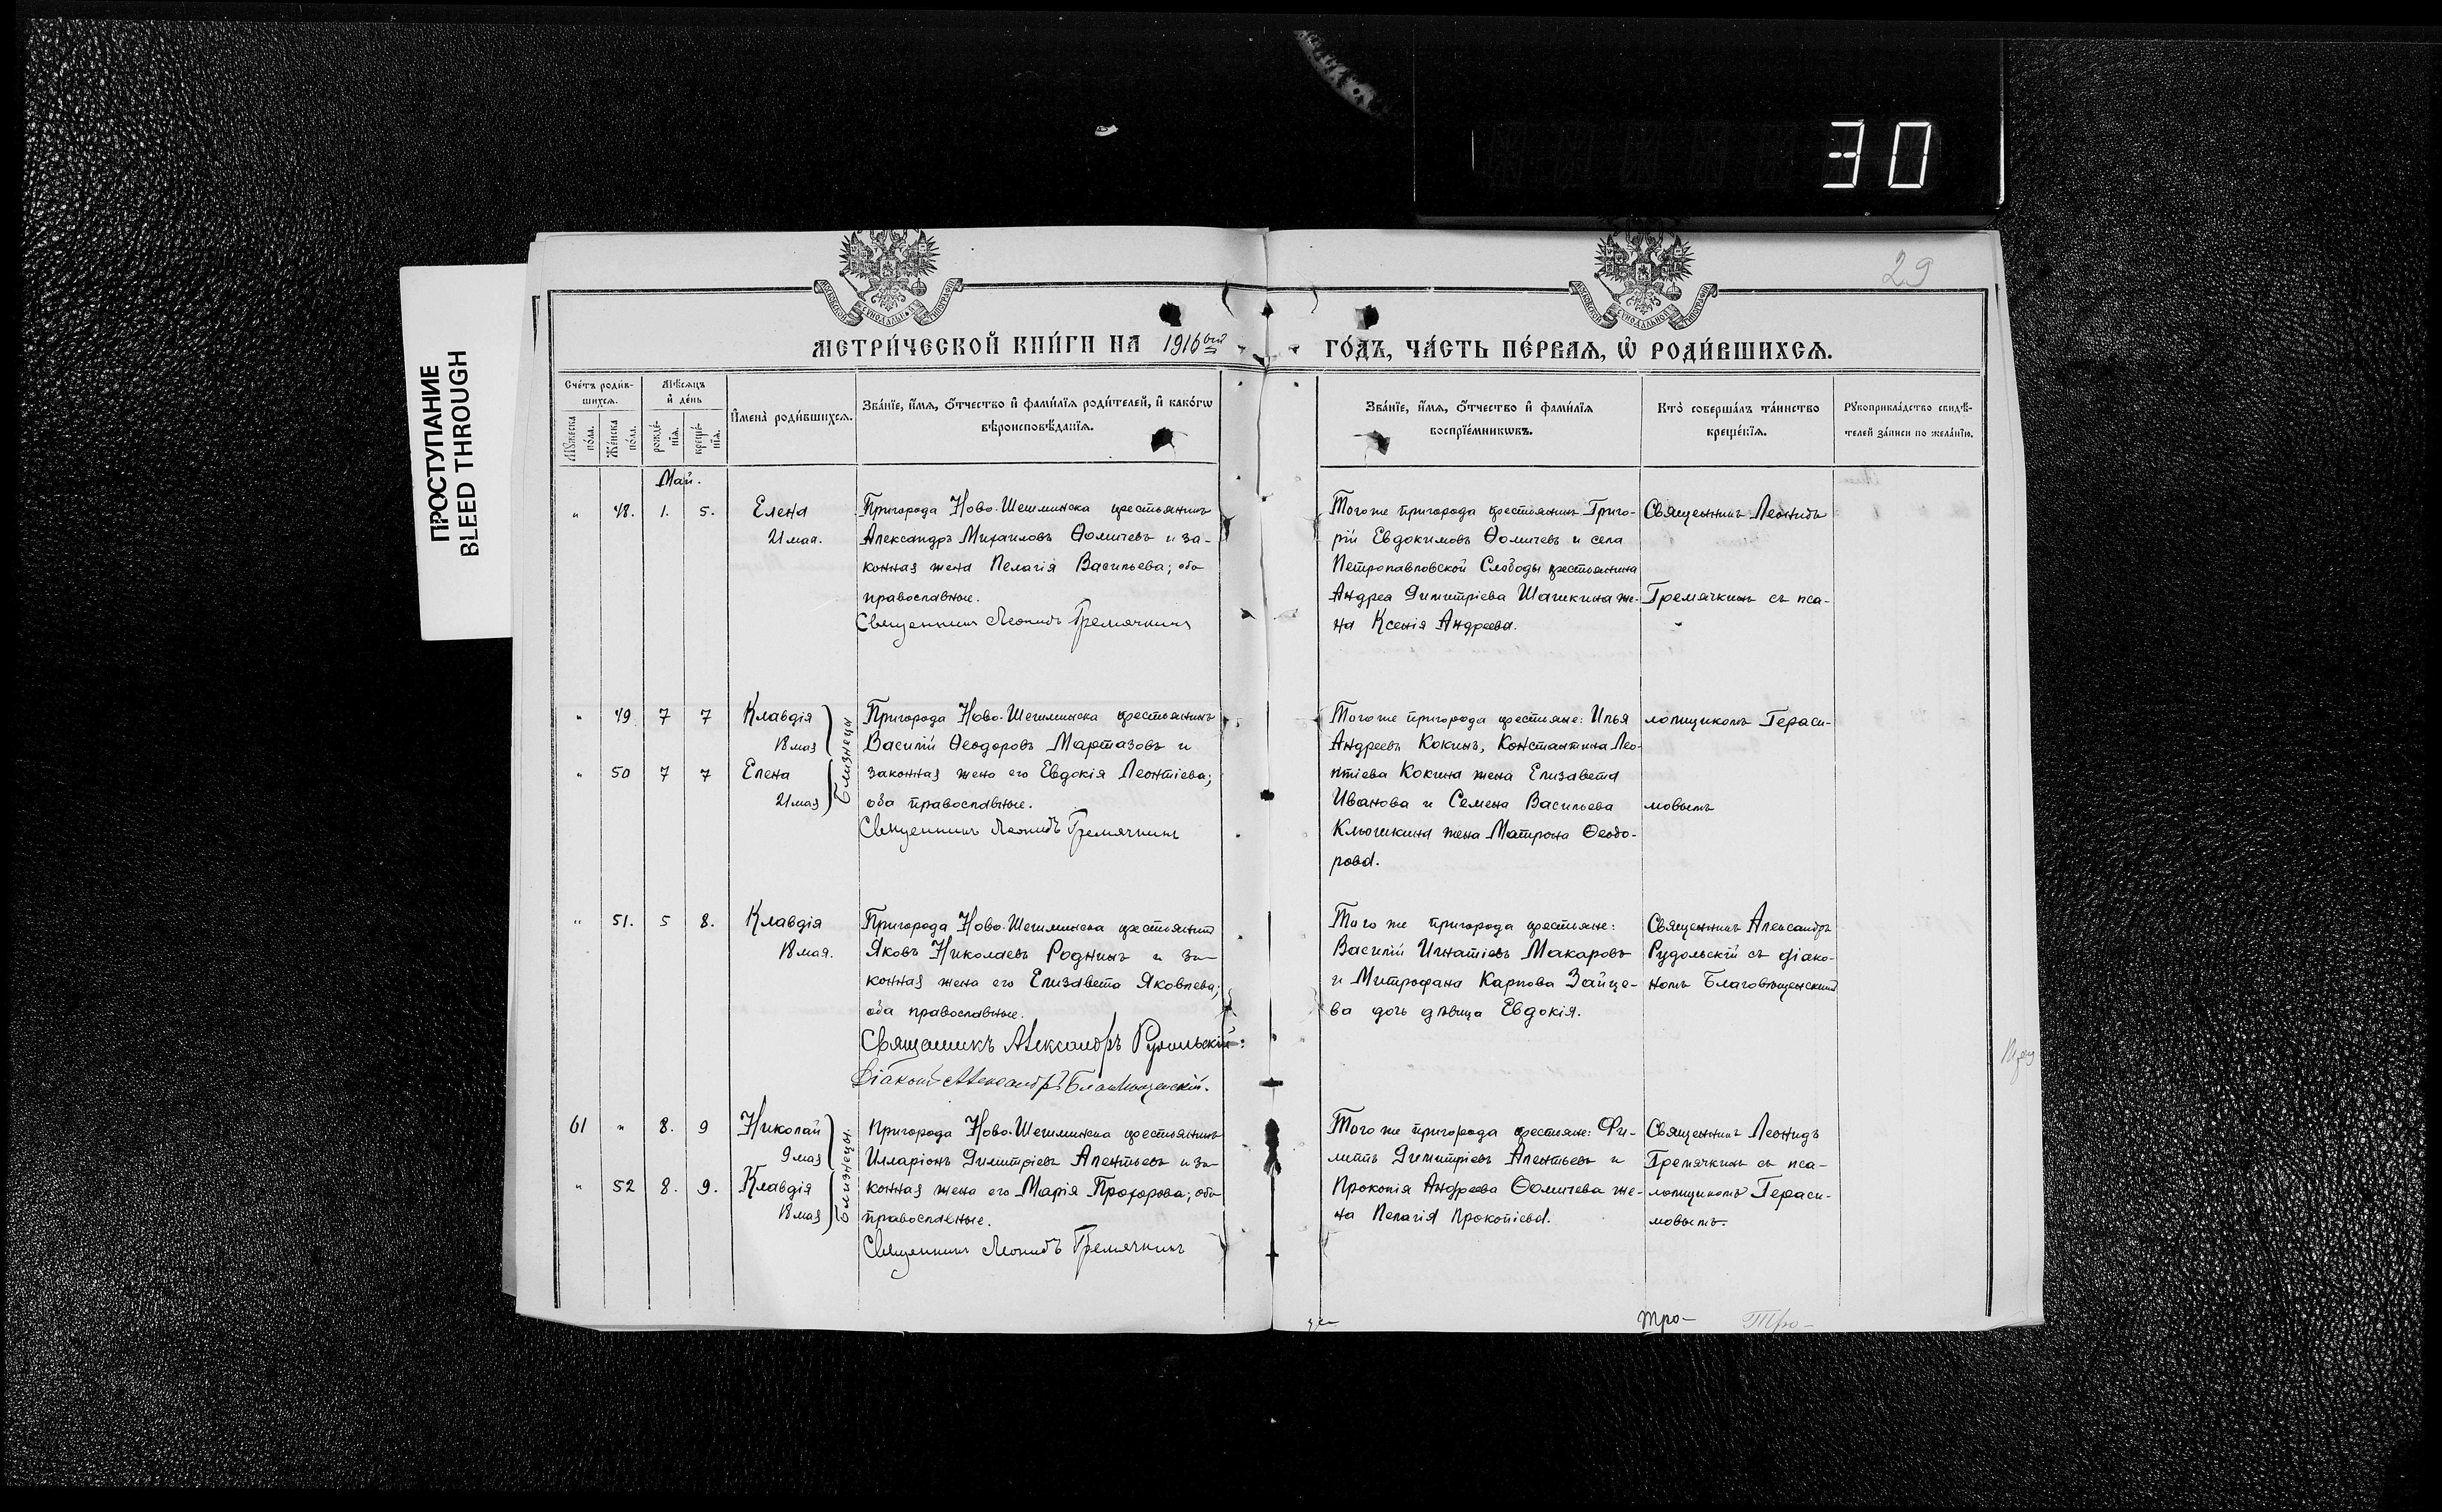 30
ПРОСТУПАНИЕ
BLEED THROUGH
29
МЕТРИ́ЧЕСКОЙ КНИ́ГИ НА 1916ый ГО́ДЪ, ЧА́СТЬ ПЕ́РВАЯ, Ѡ РОДИ́ВШИХСЯ.
Сче́тъ роди́в-
шихся.
Мѣ́сяцъ
и҆ де́нь
Мꙋ́жеска
по́ла.
Же́нска
по́ла.
рожде́-
нїя.
креще́-
нїя.
И҆мена̀ роди́вшихся.
Зва́нїе, и҆́мя, ѻ҆́тчество и҆ фами́лїя роди́телей, и҆ како́гѡ
вѣроисповѣ́данїя.
Зва́нїе, и҆́мя, ѻ҆́тчество и҆ фами́лїя
воспрїе́мникѡвъ.
Кто̀ соверша́лъ та́инство
креще́нїя.
Рꙋкоприкла́дство свидѣ́-
телей за́писи по жела́нїю.
Май.
" 48. 1. 5. Елена
21 мая.
Пригорода Ново-Шешминска крестьянинъ
Александръ Михаиловъ Ѳомичевъ и за-
конная жена Пелагія Васильева; оба
православные.
Священникъ Леонидъ Гремячкинъ
Того же пригорода крестьянинъ Григо-
рій Евдокимовъ Ѳомичевъ и села
Петропавловской Слободы крестьянина
Андрея Димитріева Шашкина же-
на Ксенія Андреева.
Священникъ Леонидъ
Гремячкинъ съ пса-
" 49 7 7 Клавдія
18 мая
" 50 7 7 Елена
21 мая
Близнецы
Пригорода Ново-Шешминска крестьянинъ
Василій Ѳеодоровъ Мартазовъ и
законная жена его Евдокія Леонтіева;
оба православные.
Священникъ Леонидъ Гремячкинъ
Того же пригорода крестьяне: Илья
Андреевъ Кокинъ, Константина Лео-
нтіева Кокина жена Елизавета
Иванова и Семена Васильева
Клюшкина жена Матрона Ѳеодо-
рова.
ломщикомъ Гераси-
мовымъ
" 51. 5 8. Клавдія
18 мая.
Пригорода Ново-Шешминска крестьянинъ
Яковъ Николаевъ Роднинъ и за-
конная жена его Елизавета Яковлева;
оба православные.
Священникъ Александръ Рудольскій.
Діаконъ Александръ Благовѣщенскій.
Того же пригорода крестьяне:
Василій Игнатіевъ Макаровъ
и Митрофана Карпова Зайце-
ва дочь дѣвица Евдокія.
Священникъ Александръ
Рудольскій съ діако-
номъ Благовѣщенскимъ
61 " 8. 9 Николай
9 мая
" 52 8. 9. Клавдія
18 мая
Близнецы.
Пригорода Ново-Шешминска крестьянинъ
Илларіонъ Димитріевъ Алентьевъ и за-
конная жена его Марія Прохорова; оба
православные.
Священникъ Леонидъ Гремячкинъ
Того же пригорода крестьяне: Фи-
липпъ Димитріевъ Алентьевъ и
Прокопія Андреева Ѳомичева же-
на Пелагія Прокопіева.
Священникъ Леонидъ
Гремячкинъ съ пса-
ломщикомъ Гераси-
мовымъ.
тро-
Тро-